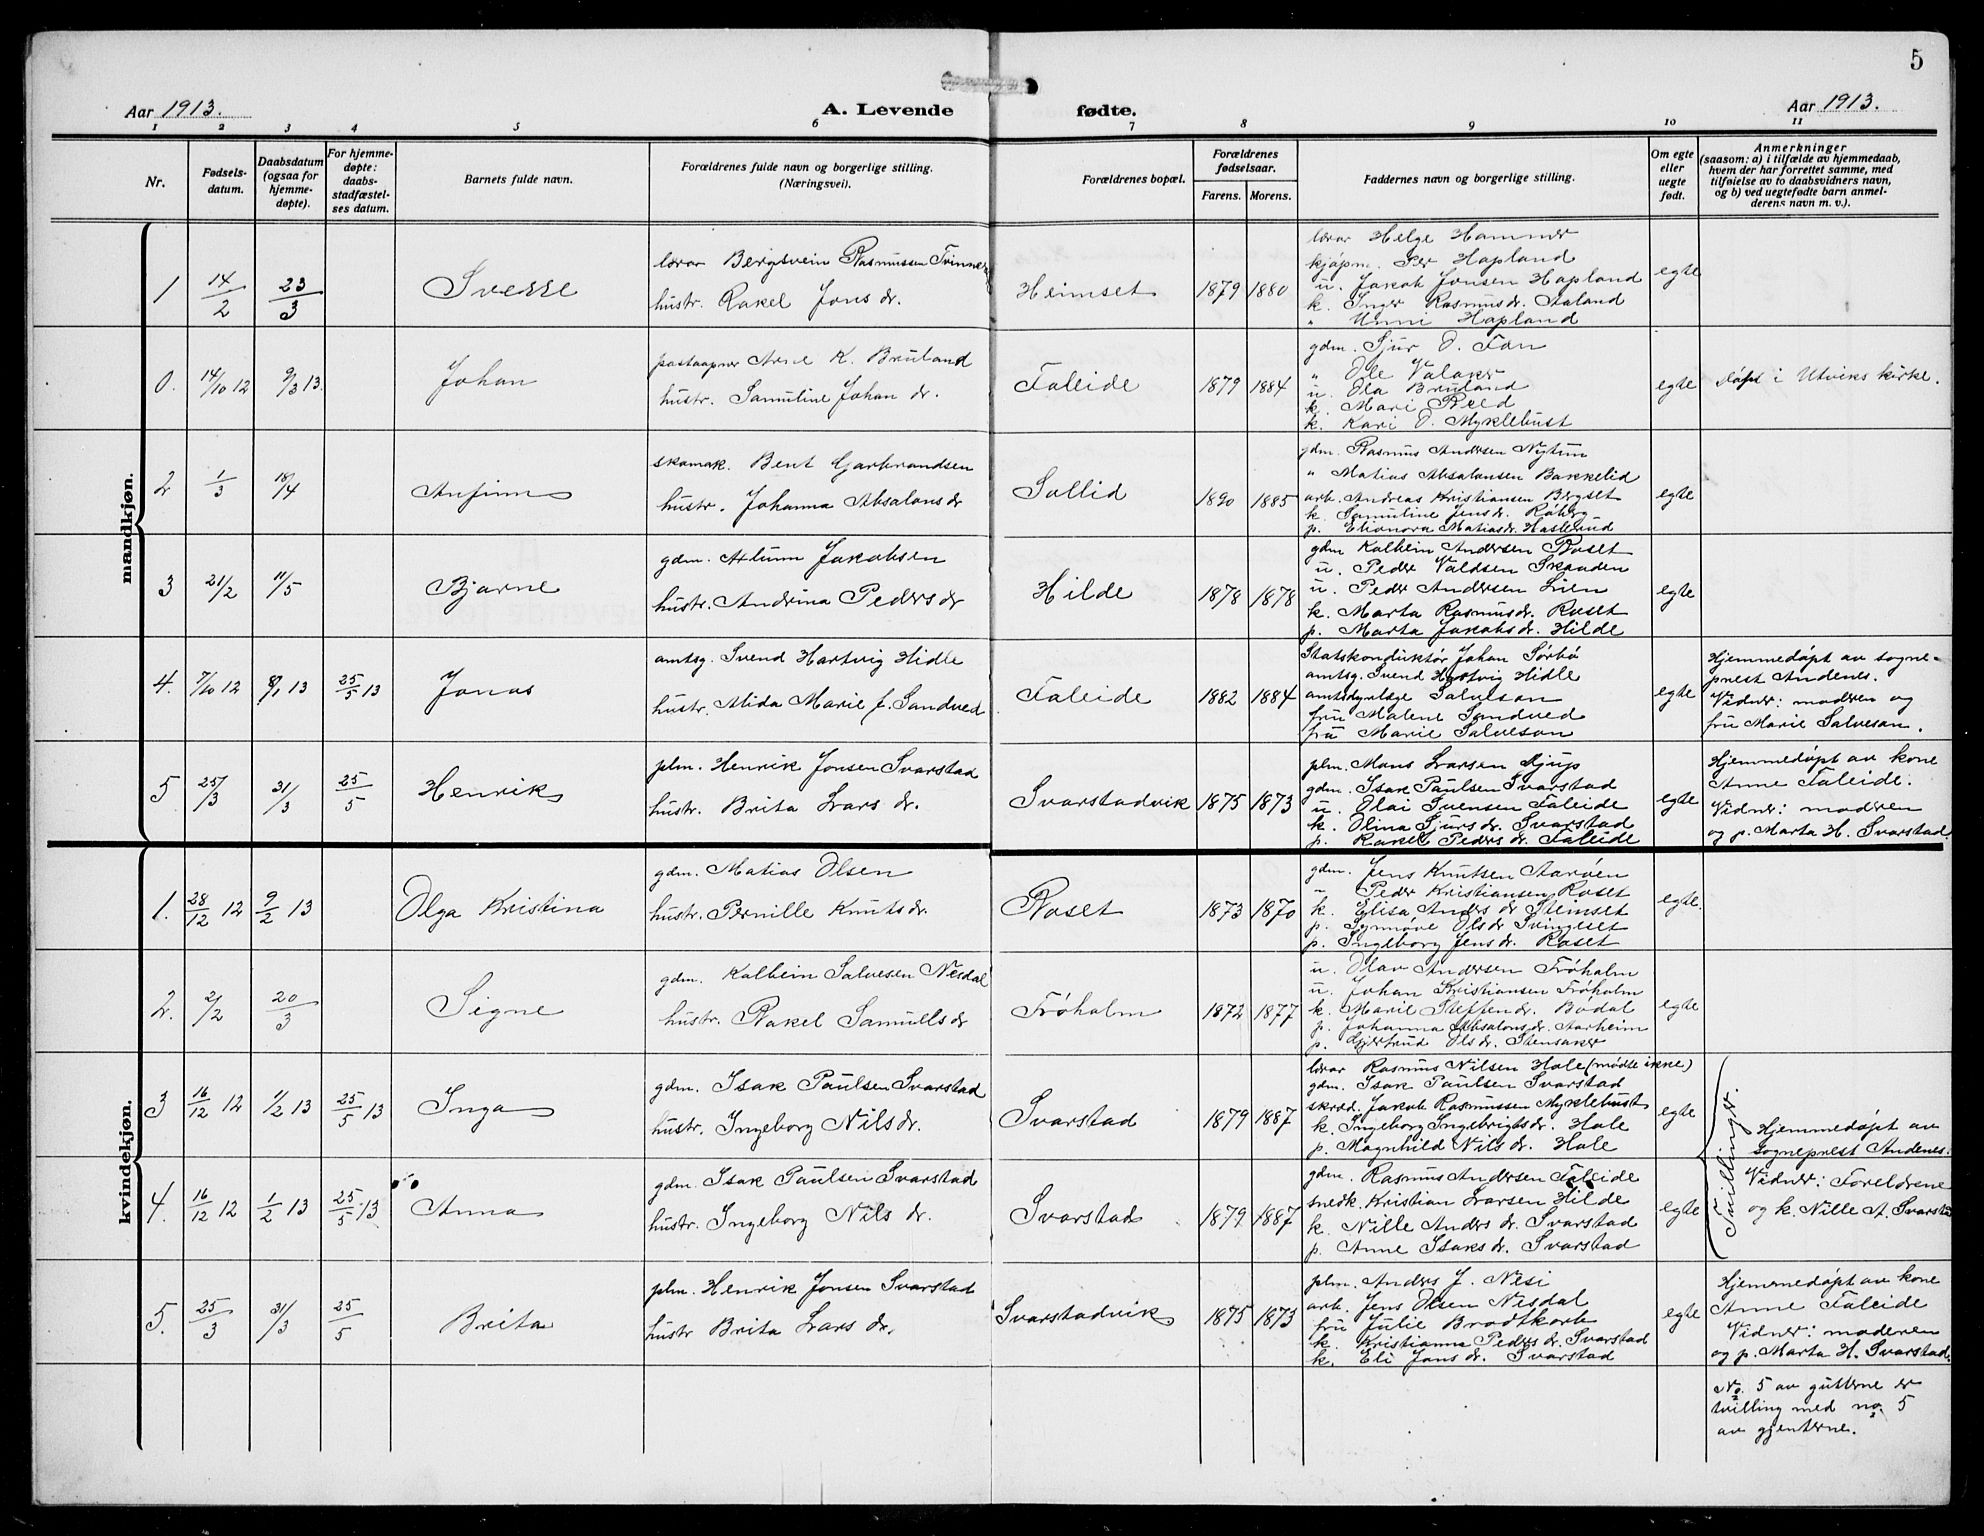 5
Aar 1913.
A. Levende fødte.
Aar 1913.
1 2 3 4 5 6 7 8 9 10 11
Nr.
Fødselsdatum.
Daabsdatum (ogsaa for hjemmedøpte).
For hjemmedøpte: daabsstadfæstelses datum.
Barnets fulde navn.
Forældrenes fulde navn og borgerlige stilling. (Næringsvei).
Forældrenes bopæl.
Forældrenes fødselsaar.
Farens. Morens.
Faddernes navn og borgerlige stilling.
Om egte eller uegte født.
Anmerkninger
(saasom: a) i tilfælde av hjemmedaab,
hvem der har forrettet samme, med
tilføielse av to daabsvidners navn,
og b) ved uegtefødte barn anmelderens navn m. v.).
mandkjøn.
1 14/2 23/3 Sverre
lærer Bergsvein Rasmussen Tvinnere
hustr. Rakel Jons dr.
Heimset 1879 1880
lærer Helge Hammer
kjøpm. Per Hapland
u. Jakob Jonsen Hapland
k. Inger Rasmusdr. Staland
" Unni Hapland
egte
0. 14/10 12 9/3 13. Johan
postaapner Arne K. Bruland
hustr. Samuline Johan dr.
Faleide 1879 1884
gdm. Sjur O. Fon
" Ole Valaker
u. Ola Bruland
k. Mari Reed
k. Kari O. Myklebust
egte
Døpt i Utviks kirke.
2 1/3 18/4 Anfinn
skomak. Bent Garbrandsen
hustr. Johanna Absalons dr
Sollid 1890 1885
gdm. Rasmus Andersen Nygtun
" Matias Absalonsen Bakkelid
arb. Andreas Kristiansen Bergset
k. Samuline Jensdr. Røberg
p. Elionora Matiasdr. Haslerud
egte
3 21/2 11/5 Bjarne
gdm. Atlum Jakobsen
hustr. Andrina Peders dr
Hilde 1878 1878
gdm Kolbein Andersen Roset
u. Peder Valdsen Skaaden
u. Peder Andersen Lien
k. Marta Rasmusdr. Roset
p. Marta Jakobsdr. Hilde
egte
4. 7/10 12 8/1 13 25/5 13 Jonas
amtsg. Svend Hartvig Hidle
hustr. Alida Marie f. Sandved
Faleide 1882 1884
Statskonduktør Johan Sørbø
amtsg. Svend Hartvig Hidle
amtsdyrlæge Salveson
fru Malene Sandved
fru Marie Salveson
egte
Hjemmedøpt av sogneprest Andenes.
Vidner: moderen og
fru Marie Salveson.
5 25/3 31/3 25/5 Henrik
plm. Henrik Jonsen Svarstad
hustr. Brita Lars dr.
Svarstadvik 1875 1873
plm. Mons Larsen Djup
gdm. Isak Paulsen Svarstad
u. Olai Svensen Faleide
k. Olina Sjursdr. Svarstad
p. Rakel Peders dr. Faleide
egte
Hjemmedøpt av kone
Anne Faleide.
Vidner: moderen
og p. Marta H. Svarstad.
kvindekjøn.
1. 28/12 12 9/2 13 Olga Kristina
gdm. Matias Olsen
hustr. Pernille Knutsdr.
Roset 1873 1870
gdm. Jens Knutsen Aarøen
u. Peder Kristiansen Roset
k. Elisa Anders dr Heimset
p. Synnøve Olsdr Svingeset
p. Ingeborg Jensdr. Roset
egte.
2. 2/2 20/3 Signe
gdm. Kolbein Salvesen Nesdal
hustr. Rakel Samuels dr
Frøholm 1872 1877
u. Olav Andersen Frøholm
u. Johan Kristiansen Frøholm
k. Marie Steffendr. Bødal
p. Johanna Absalonsdr. Aarheim
p. Gjertrud Olsdr. Stensaker
egte
3 16/12 12 1/2 13 25/5 13 Inga
gdm. Isak Paulsen Svarstad
hustr. Ingeborg Nilsdr.
Svarstad 1879 1887
lærer Rasmus Nilsen Hole (mødte ikke)
gdm. Isak Paulsen Svarstad
skræd. Jakob Rasmussen Myklebust
k. Ingeborg Ingebrigtsdr. Hole
p. Magnhild Nilsdr. Hole
egte
Tvillinger.
Hjemmedøpt av
Sogneprest Andenes.
Vidner: Foreldrene
og k. Nille A. Svarstad
4. 16/12 12 1/2 13 25/5 13 Anna
gdm. Isak Paulsen Svarstad
hustr. Ingeborg Nils dr.
Svarstad 1879 1887
gdm. Rasmus Andersen Faleide
snedk. Kristian Larsen Hilde
k. Nille Anders dr. Svarstad
p. Anne Isaks dr. Svarstad
egte
5. 25/3 31/3 25/5 Brita
plm. Henrik Jonsen Svarstad
hustr Brita Lars dr.
Svarstadvik 1875 1873
plm. Anders J. Nesi
arb. Jens Olsen Nesdal
fru Julie Brodtkorb
k. Kristianna Peders dr. Svarstad
k. Eli Jonsdr. Svarstad
egte
Hjemmedøpt av kone
Anne Faleide
Vidner: moderen
og p. Marta H. Svarstad.
No. 5 av gutterne er
tvilling med no. 5
av gjenterne.